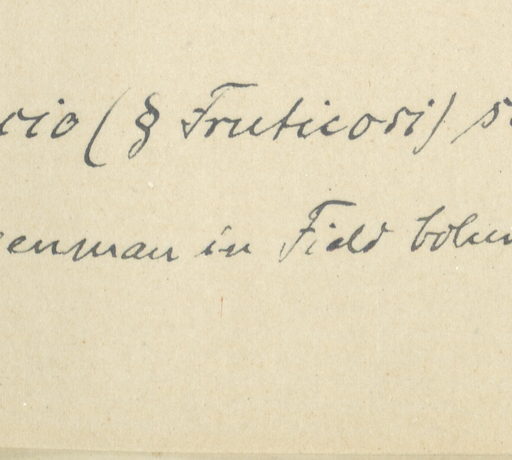 cio (§ Fruticosi) s
eenman in Field Colum